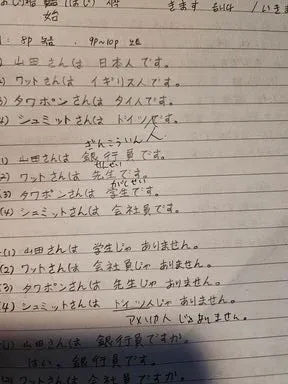 始
1) 山田さんは 日本人です。
2) ワットさんは イギリス人です。
3) タワポンさんは タイ人です。
4) シュミットさんは ドイツ人です。
ぎんこういん
1) 山田さんは 銀行員です。
せんせい
2) ワットさんは 先生です。
がくせい
(3) タワポンさんは 学生です。
(4) シュミットさんは 会社員です。
(1) 山田さんは 学生じゃ ありません。
(2) ワットさんは 会社員じゃ ありません。
(3) タワポンさんは 先生じゃ ありません。
(4) シュミットさんは ドイツ人じゃ ありません。
アメリカ人 じゃ ありません。
山田さんは 銀行員ですか。
はい。銀行員です。
ワットさんは 会社員ですか。